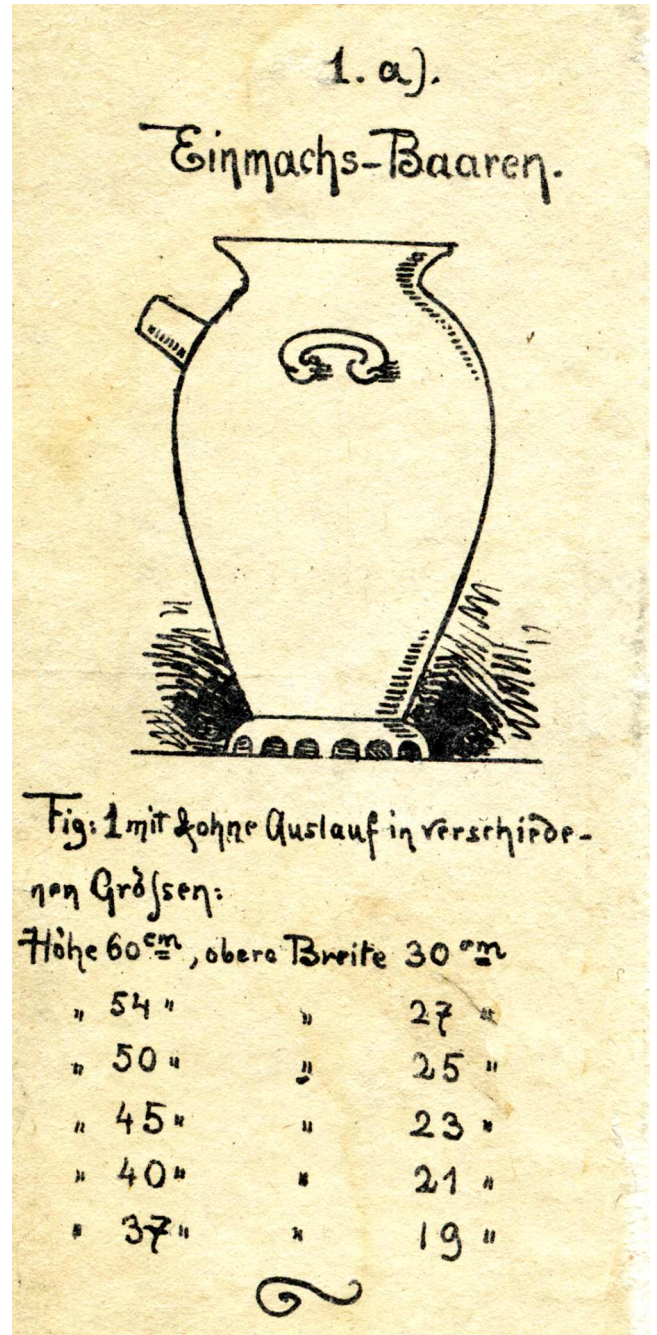 1. a).
Einmachs-Baaren.
Fig: 1 mit & ohne Auslauf in verschiede-
nen Größen:
Höhe 60 cm, obere Breite 30 cm
" 54 " " 27 "
" 50 " " 25 "
" 45 " " 23 "
" 40 " " 21 "
" 37 " " 19 "